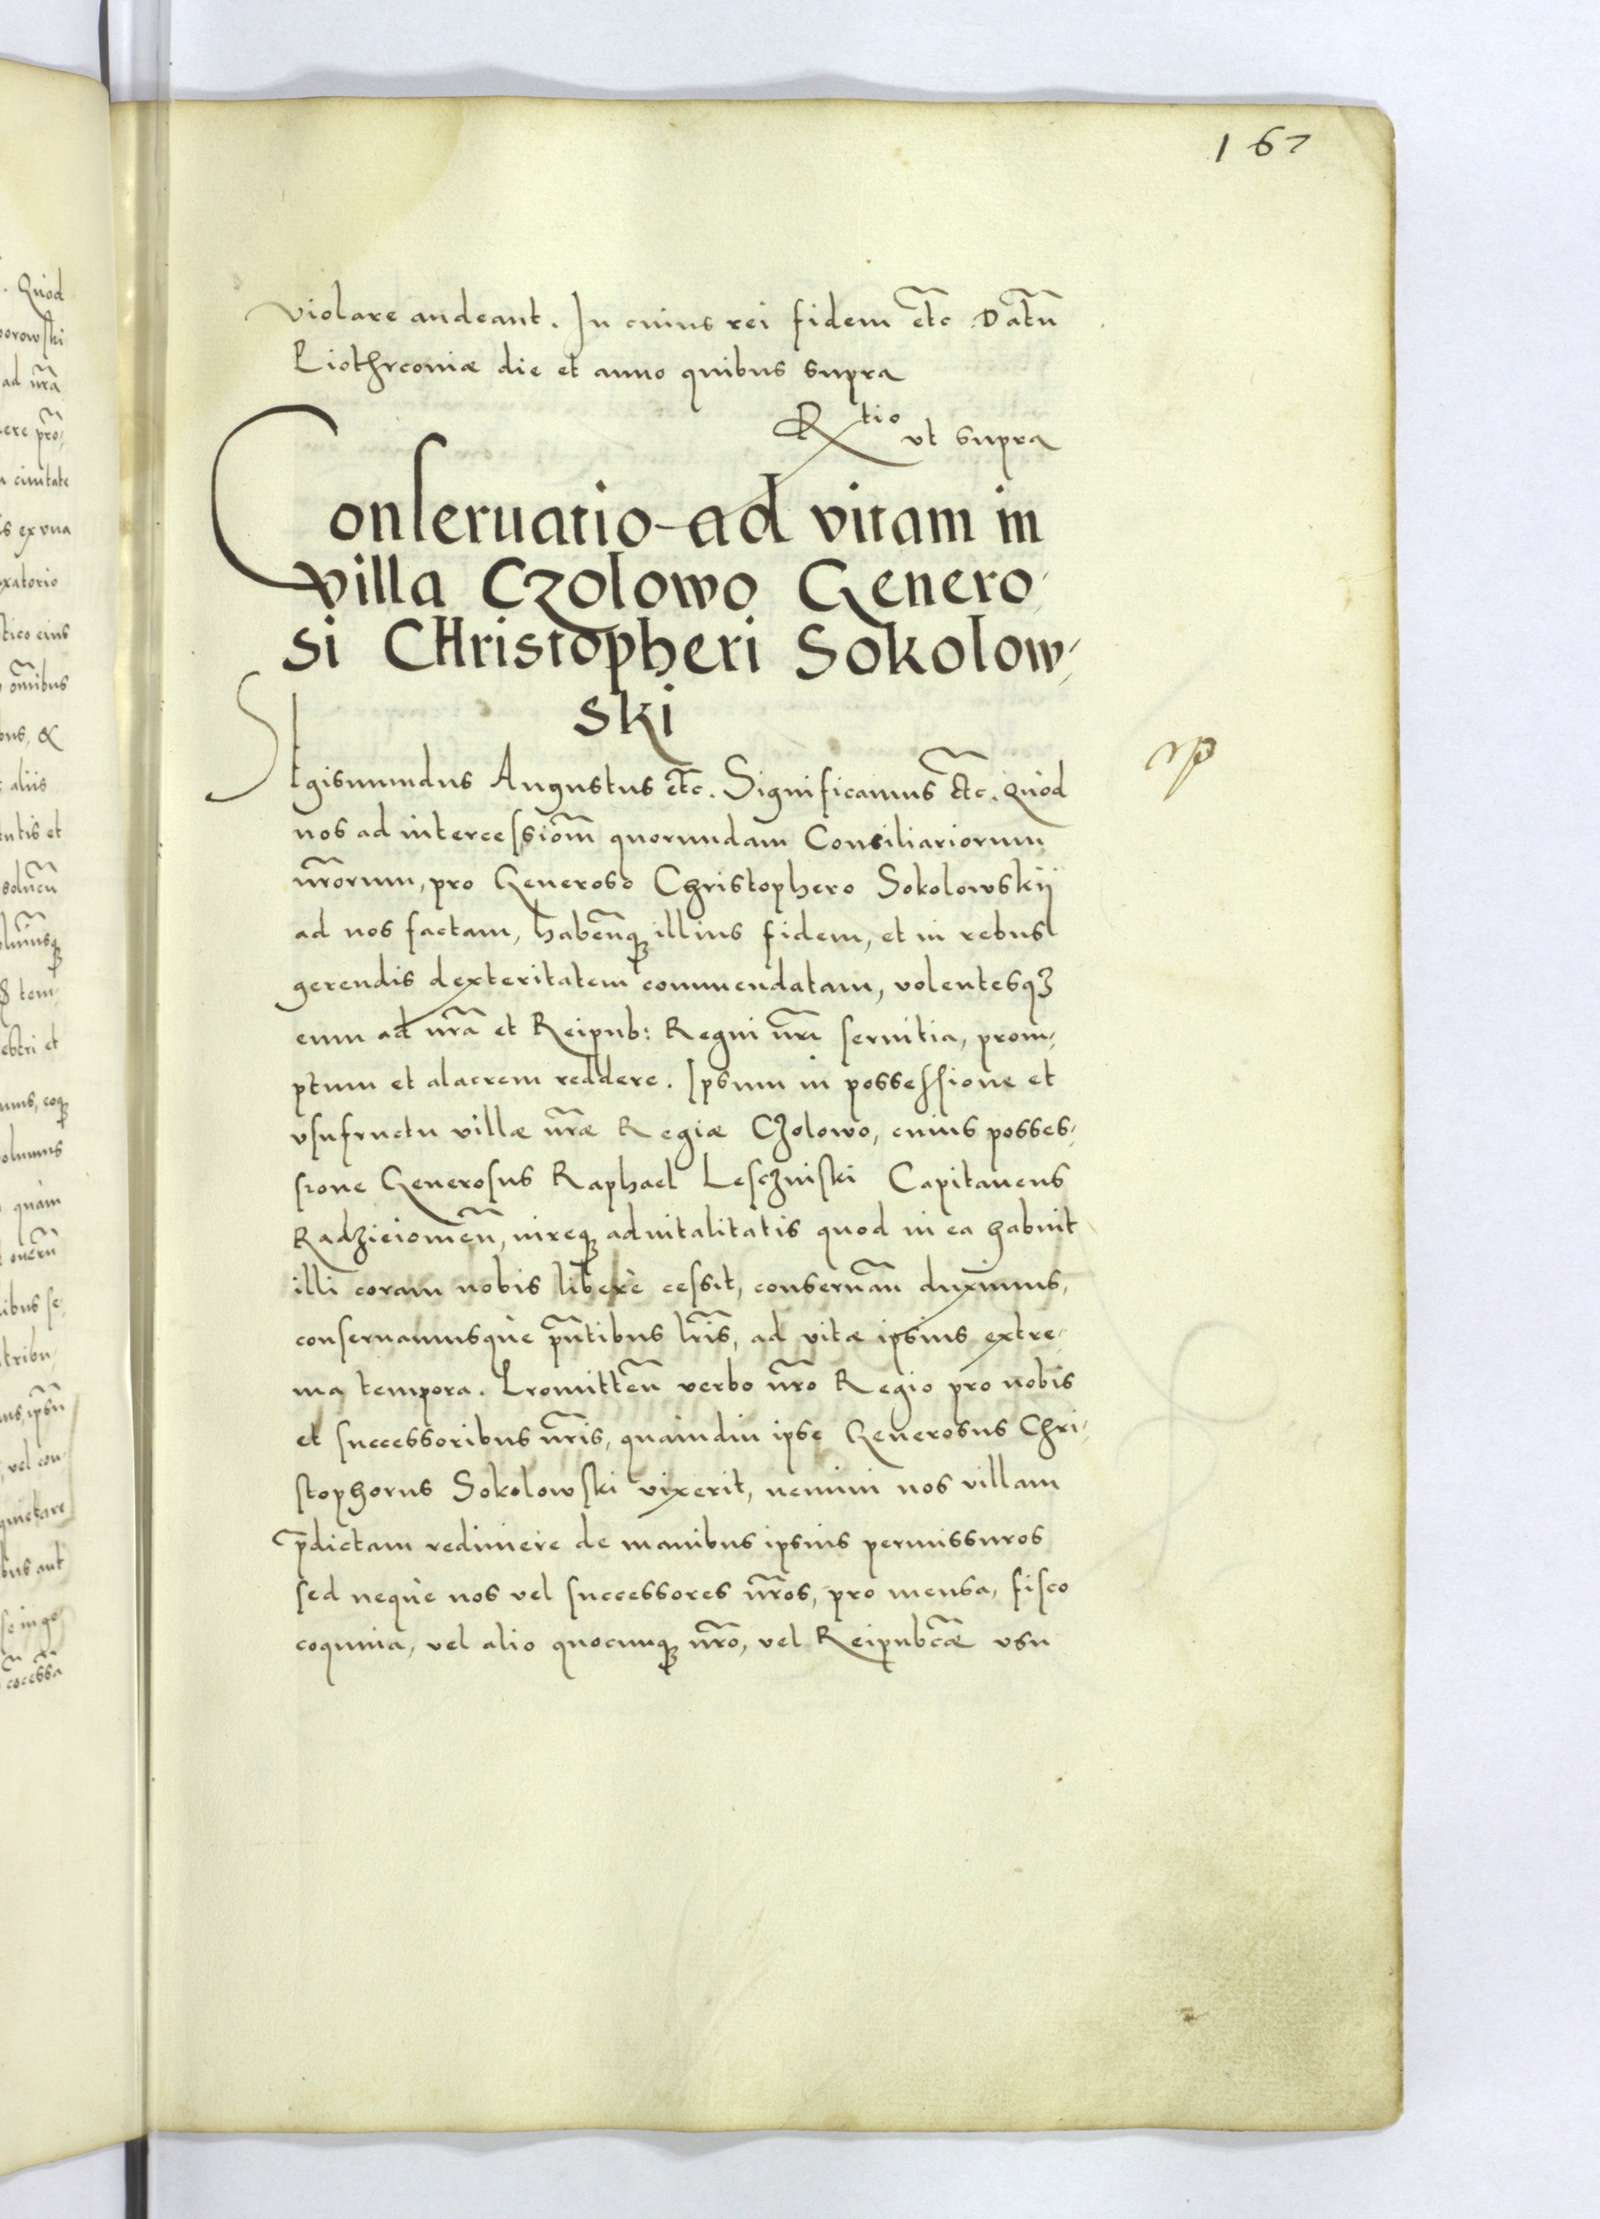 167
violare audeant. In cuius rei fidem etc Datũ
Piothrcoviæ die et anno quibus supra
Rtio vt supra
Conseruatio ad vitam in
villa Czolowo Genero,
si CHristopheri Sokolow,
ski
SIgismundus Augustus etc. Significamus etc. Quòd
nos ad intercessiom̃ quorundam Consiliariorum
nr̃orum, pro Generoso Christophero Sokolowskij
ad nos factam, habeñq illius fidem, et in rebus
gerendis dexteritatem commendatam, volentesqʒ
eum ad nr̃a et Reipub: Regni nr̃i seruitia, prom,
ptum et alacrem reddere. Ipsum in possessione et
vsufructu villæ nr̃æ Regiæ Czolowo, cuius posses,
sione Generosus Raphael Lesczniski Capitaneus
Radzieiomeñ, iureq aduitalitatis quod in ea habuit
illi coram nobis liberè cessit, conseruañ duximus,
conseruamusquè pñtibus lr̃is, ad vitæ ipsius extre,
ma tempora. Promitteñ verbo nr̃o Regio pro nobis
et successoribus nr̃is, quamdiu ipse Generosus Chri,
stophorus Sokolowski vixerit, nemini nos villam
p̃dictam redimere de manibus ipsius permissuros
sed nequè nos vel successores nr̃os, pro mensa, fisco
coquina, vel alio quocunq nr̃o, vel Reipubcæ̃ vsu